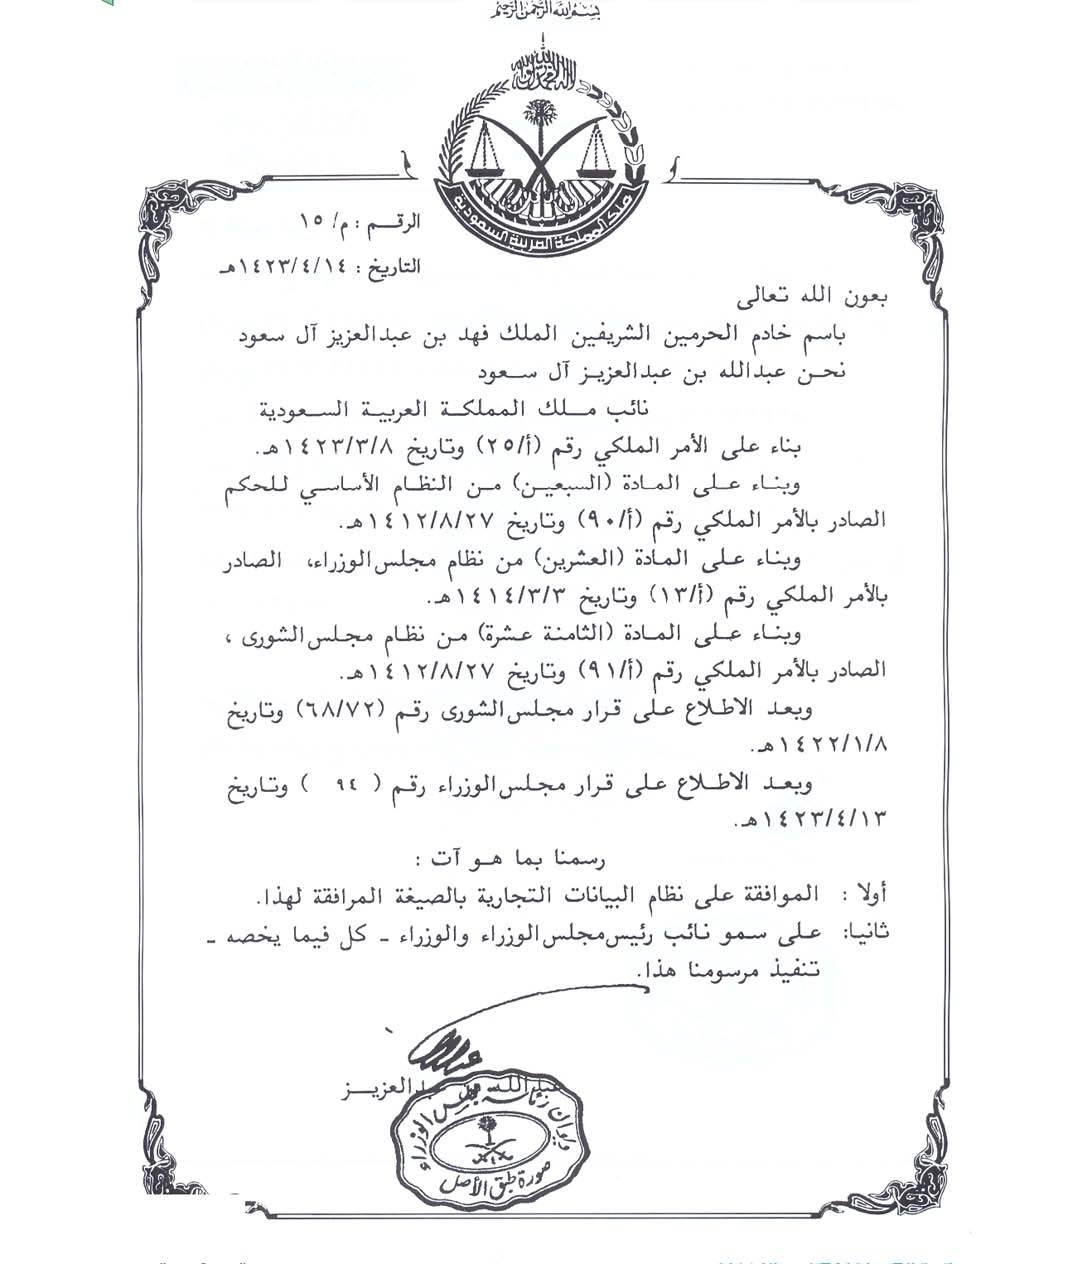 بسم الله الرحمن الرحيم
لا إله إلا الله محمد رسول الله
ملك المملكة العربية السعودية
الرقـــم : م/ ١٥
التاريخ : ١٤٢٣/٤/١٤هـ
بعون الله تعالى
باسم خادم الحرمين الشريفين الملك فهد بن عبدالعزيز آل سعود
نحـن عبدالله بن عبدالعزيـز آل سـعود
نائب مـلك المملكـة العربيـة السـعودية
بناء على الأمر الملكي رقم (أ/٢٥) وتاريخ ١٤٢٣/٣/٨هـ.
وبنـاء علـى المـادة (السبعيـن) مـن النظـام الأساسـي للـحكم
الصادر بالأمر الملكي رقم (أ/٩٠) وتاريخ ١٤١٢/٨/٢٧هـ.
وبناء علـى المـادة (العشرين) من نظام مجلس الوزراء، الصادر
بالأمر الملكي رقم (أ/١٣) وتاريخ ١٤١٤/٣/٣هـ.
وبناء علـى المـادة (الثامنة عشرة) مـن نظـام مجـلس الشورى ،
الصادر بالأمر الملكي رقم (أ/٩١) وتاريخ ١٤١٢/٨/٢٧هـ.
وبعـد الاطـلاع علـى قـرار مجـلس الشورى رقـم (٦٨/٧٢) وتاريخ
١٤٢٢/١/٨هـ.
وبعـد الاطـلاع علـى قـرار مجـلس الوزراء رقـم ( ٩٤ ) وتاريخ
١٤٢٣/٤/١٣هـ.
رسمنا بما هـو آت :
أولا : الموافقة على نظام البيانات التجارية بالصيغة المرافقة لهذا.
ثانيا: علـى سمو نائب رئيس مجلس الوزراء والوزراء ـ كل فيما يخصه ـ
تنفيذ مرسومنا هذا.
عبدالله بن عبدالعزيـز
ديوان رئاسة مجلس الوزراء
صورة طبق الأصل